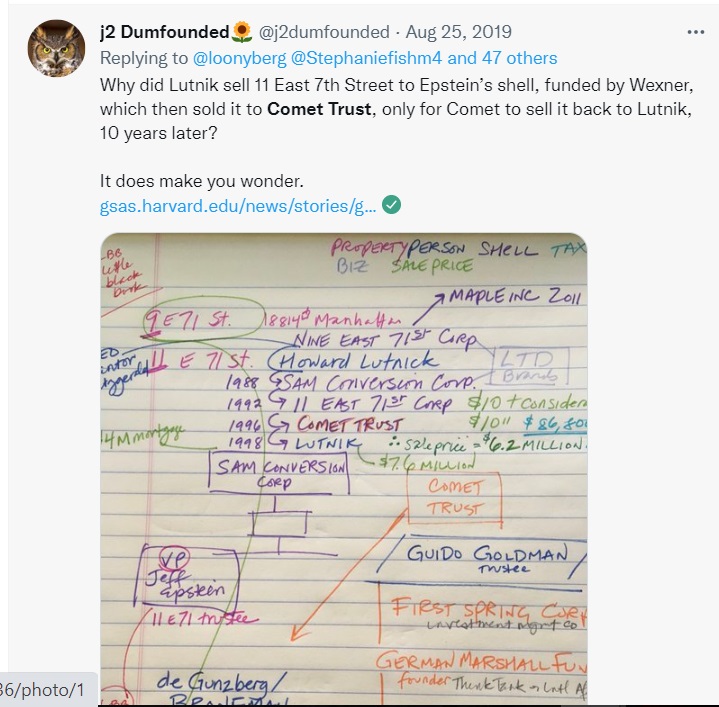 j2 Dumfounded🌻 @j2dumfounded · Aug 25, 2019
Replying to @loonyberg @Stephaniefishm4 and 47 others
Why did Lutnik sell 11 East 7th Street to Epstein's shell, funded by Wexner,
which then sold it to Comet Trust, only for Comet to sell it back to Lutnik,
10 years later?
It does make you wonder.
gsas.harvard.edu/news/stories/g...
PROPERTY PERSON SHELL TAX
BIZ SALE PRICE
BB
little
black
book
MAPLE INC 2011
9 E 71 St. Manhattan
NINE EAST 71st CORP
11 E 71 St. Howard Lutnick
LTD
Brands
1988 SAM Conversion Corp.
1992 11 EAST 71st CORP $10 + consider
1996 COMET TRUST $10"
4M mortgage
1998 LUTNIK ∴ sale price = $6.2 MILLION
$7.6 MILLION
SAM CONVERSION
CORP
COMET
TRUST
GUIDO GOLDMAN
trustee
VP
Jeff
Epstein
11 E71 trustee
FIRST SPRING CORP
investment mgmt co
GERMAN MARSHALL FUN
founder Think Tank
de Gunzberg/
36/photo/1